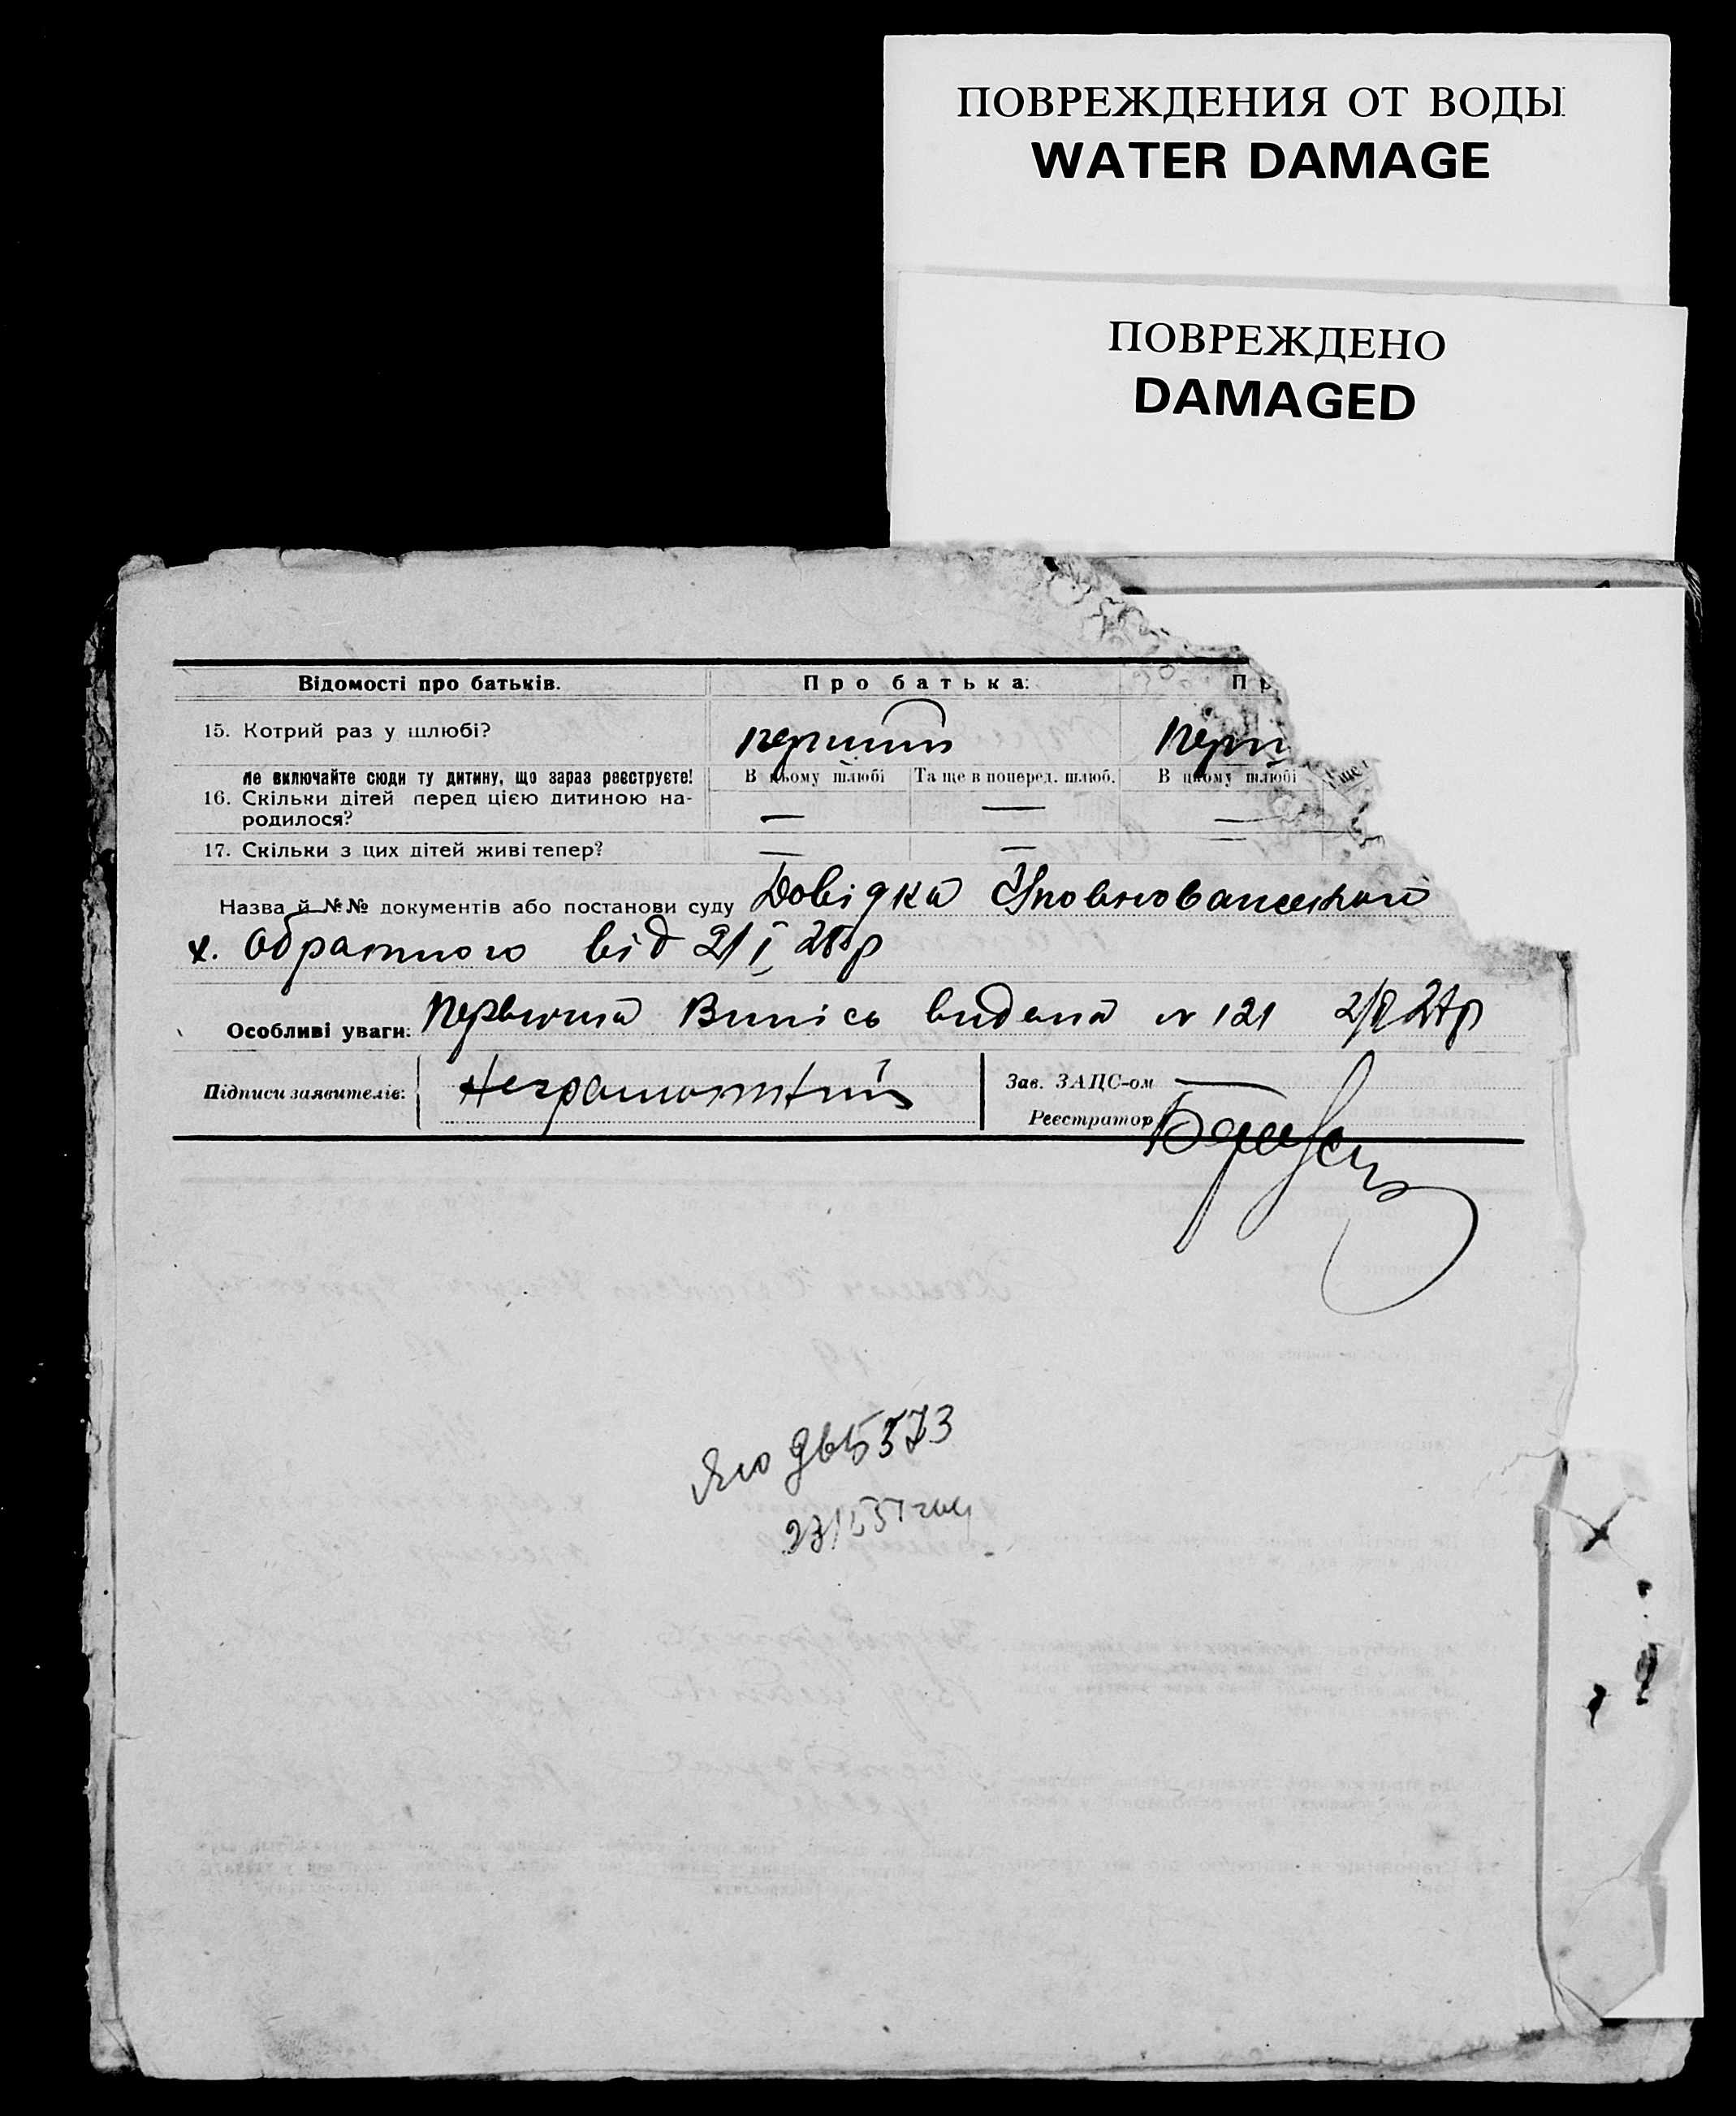 ПОВРЕЖДЕНИЯ ОТ ВОДЫ
WATER DAMAGE
ПОВРЕЖДЕНО
DAMAGED
Відомості про батьків. Про батька: Пр
15. Котрий раз у шлюбі? перший перш
Не включайте сюди ту дитину, що зараз реєструєте! В цьому шлюбі Та ще в поперед. шлюб. В цьому шлюбі
16. Скільки дітей перед цією дитиною на-
родилося? — — —
17. Скільки з цих дітей живі тепер? — — —
Назва й №№ документів або постанови суду Довідка Уповноваженный
х. Обратного від 21/I 28р
Особливі уваги: Первична Випісь видана № 121
Підписи заявителів: Неграмотний Зав. ЗАЦС-ом —
Реєстратор
573